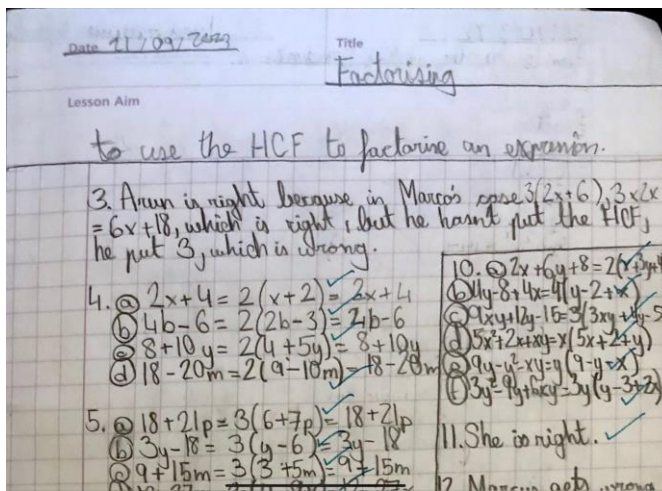 Date 21/09/2023
Title
Factorising
Lesson Aim
to use the HCF to factorise an expression.
3. Arun is right because in Marco's case 3(2x+6), 3x2x
= 6x+18, which is right, but he hasn't put the HCF,
he put 3, which is wrong.
4. a 2x+4 = 2(x+2) = 2x+4
b 4b-6 = 2(2b-3) = 4b-6
c 8+10y = 2(4+5y) = 8+10y
d 18-20m = 2(9-10m) = 18-20m
5. a 18+21p = 3(6+7p) = 18+21p
b 3y-18 = 3(y-6) = 3y-18
c 9+15m = 3(3+5m) = 9+15m
10. a 2x+6y+8 = 2(x+3y+4
b 4y-8+4x = 4(y-2+x)
c 9xy+12y-15 = 3(3xy+4y-5
d 5x²+2x+xy = x(5x+2+y)
e 9y-y²-xy = y(9-y-x)
f 3y²-9y+6xy = 3y(y-3+2x)
11. She is right.
12. Marcus gets wrong